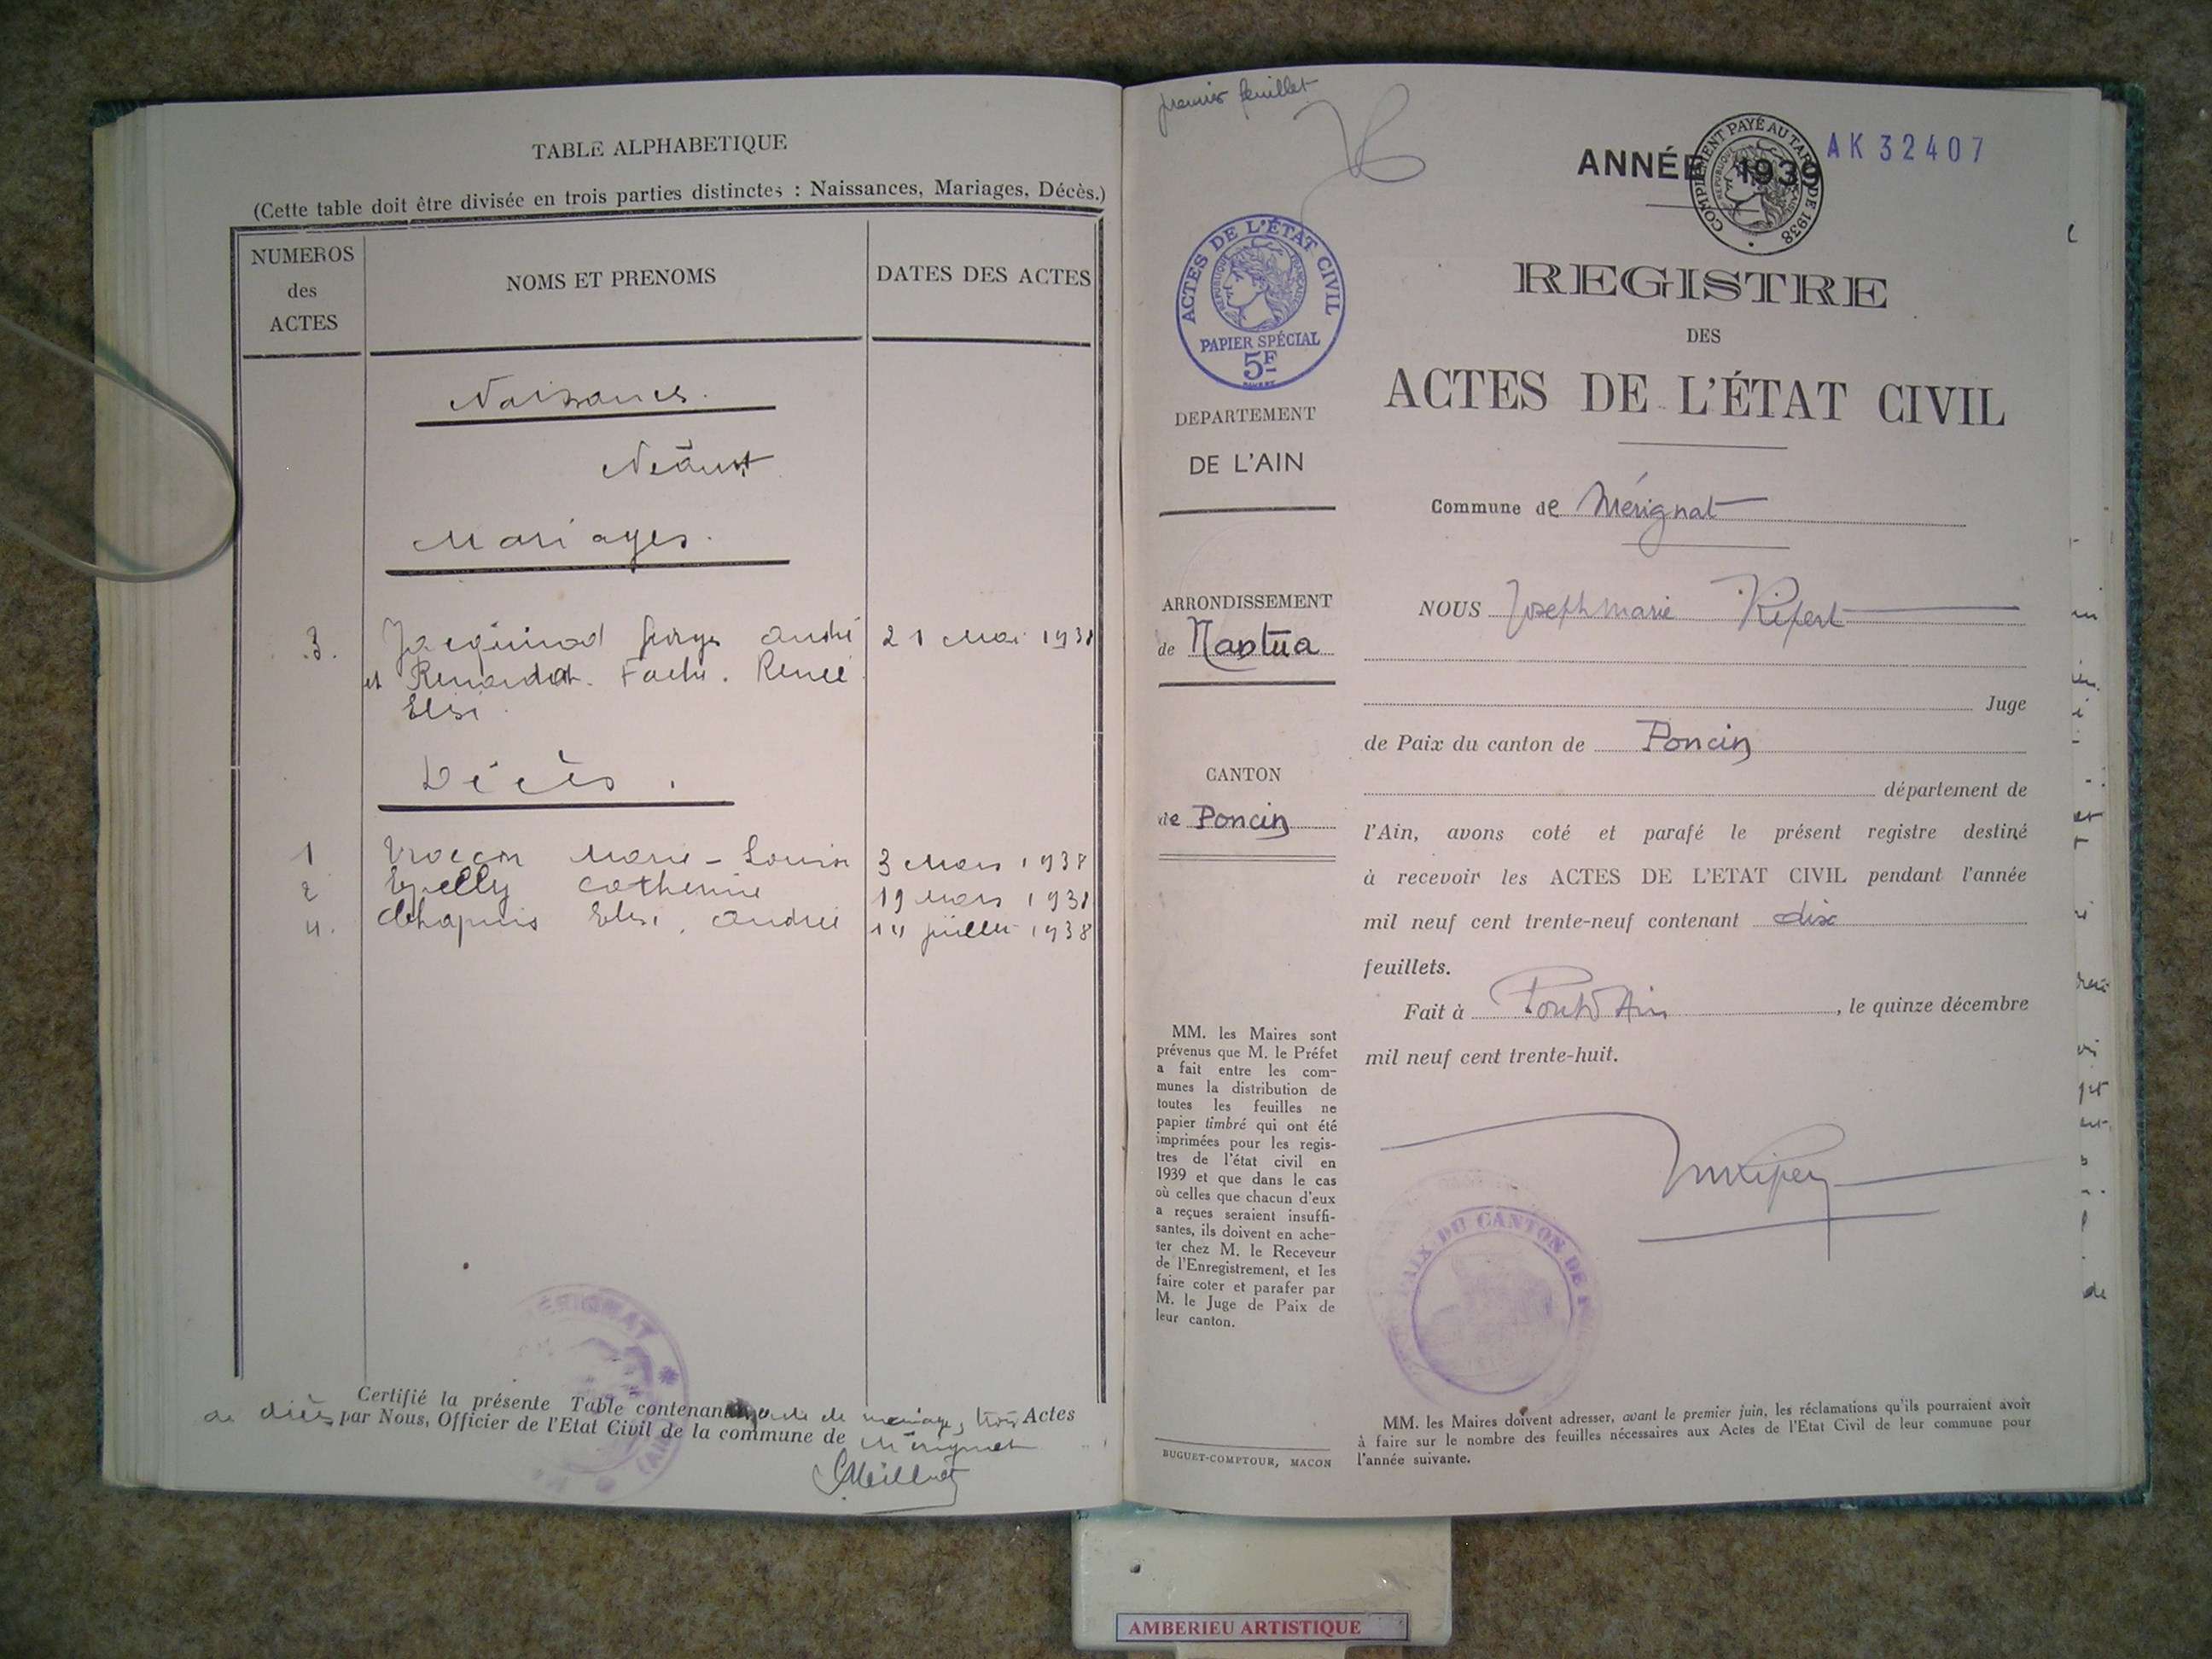 TABLE ALPHABETIQUE
(Cette table doit être divisée en trois parties distinctes : Naissances, Mariages, Décès.)
NUMEROS
des
ACTES
NOMS ET PRENOMS
DATES DES ACTES
Naissances.
Néant
Mariages.
3. Jacquinod Georges André 21 Mai 1938
et Renardat. Fache. Renée
Elise
Décès.
1 Marie-Louise 3 Mars 1938
2 Catherine 19 Mars 1938
4. Chapuis Elise, Andrée 14 juillet 1938
MERIGNAT
(AIN)
Certifié la présente Table contenant acte de mariage, trois Actes
de décès par Nous, Officier de l'Etat Civil de la commune de Mérignat
premier feuillet
ANNÉE 1939
COMPLEMENT PAYÉ AU TARIF DE 1938
AK 32407
ACTES DE L'ÉTAT CIVIL
REPUBLIQUE FRANÇAISE
PAPIER SPÉCIAL
5F
DEPARTEMENT
DE L'AIN
ARRONDISSEMENT
de Nantua
CANTON
de Poncin
MM. les Maires sont
prévenus que M. le Préfet
a fait entre les com-
munes la distribution de
toutes les feuilles ne
papier timbré qui ont été
imprimées pour les regis-
tres de l'état civil en
1939 et que dans le cas
où celles que chacun d'eux
a reçues seraient insuffi-
santes, ils doivent en ache-
ter chez M. le Receveur
de l'Enregistrement, et les
faire coter et parafer par
M. le Juge de Paix de
leur canton.
BUGUET-COMPTOUR, MACON
REGISTRE
DES
ACTES DE L'ÉTAT CIVIL
Commune de Mérignat
NOUS Joseph Marie Ripert
Juge
de Paix du canton de Poncin
département de
l'Ain, avons coté et parafé le présent registre destiné
à recevoir les ACTES DE L'ETAT CIVIL pendant l'année
mil neuf cent trente-neuf contenant dix
feuillets.
Fait à Pont d'Ain, le quinze décembre
mil neuf cent trente-huit.
PAIX DU CANTON DE
MM. les Maires doivent adresser, avant le premier juin, les réclamations qu'ils pourraient avoir
à faire sur le nombre des feuilles nécessaires aux Actes de l'Etat Civil de leur commune pour
l'année suivante.
AMBERIEU ARTISTIQUE